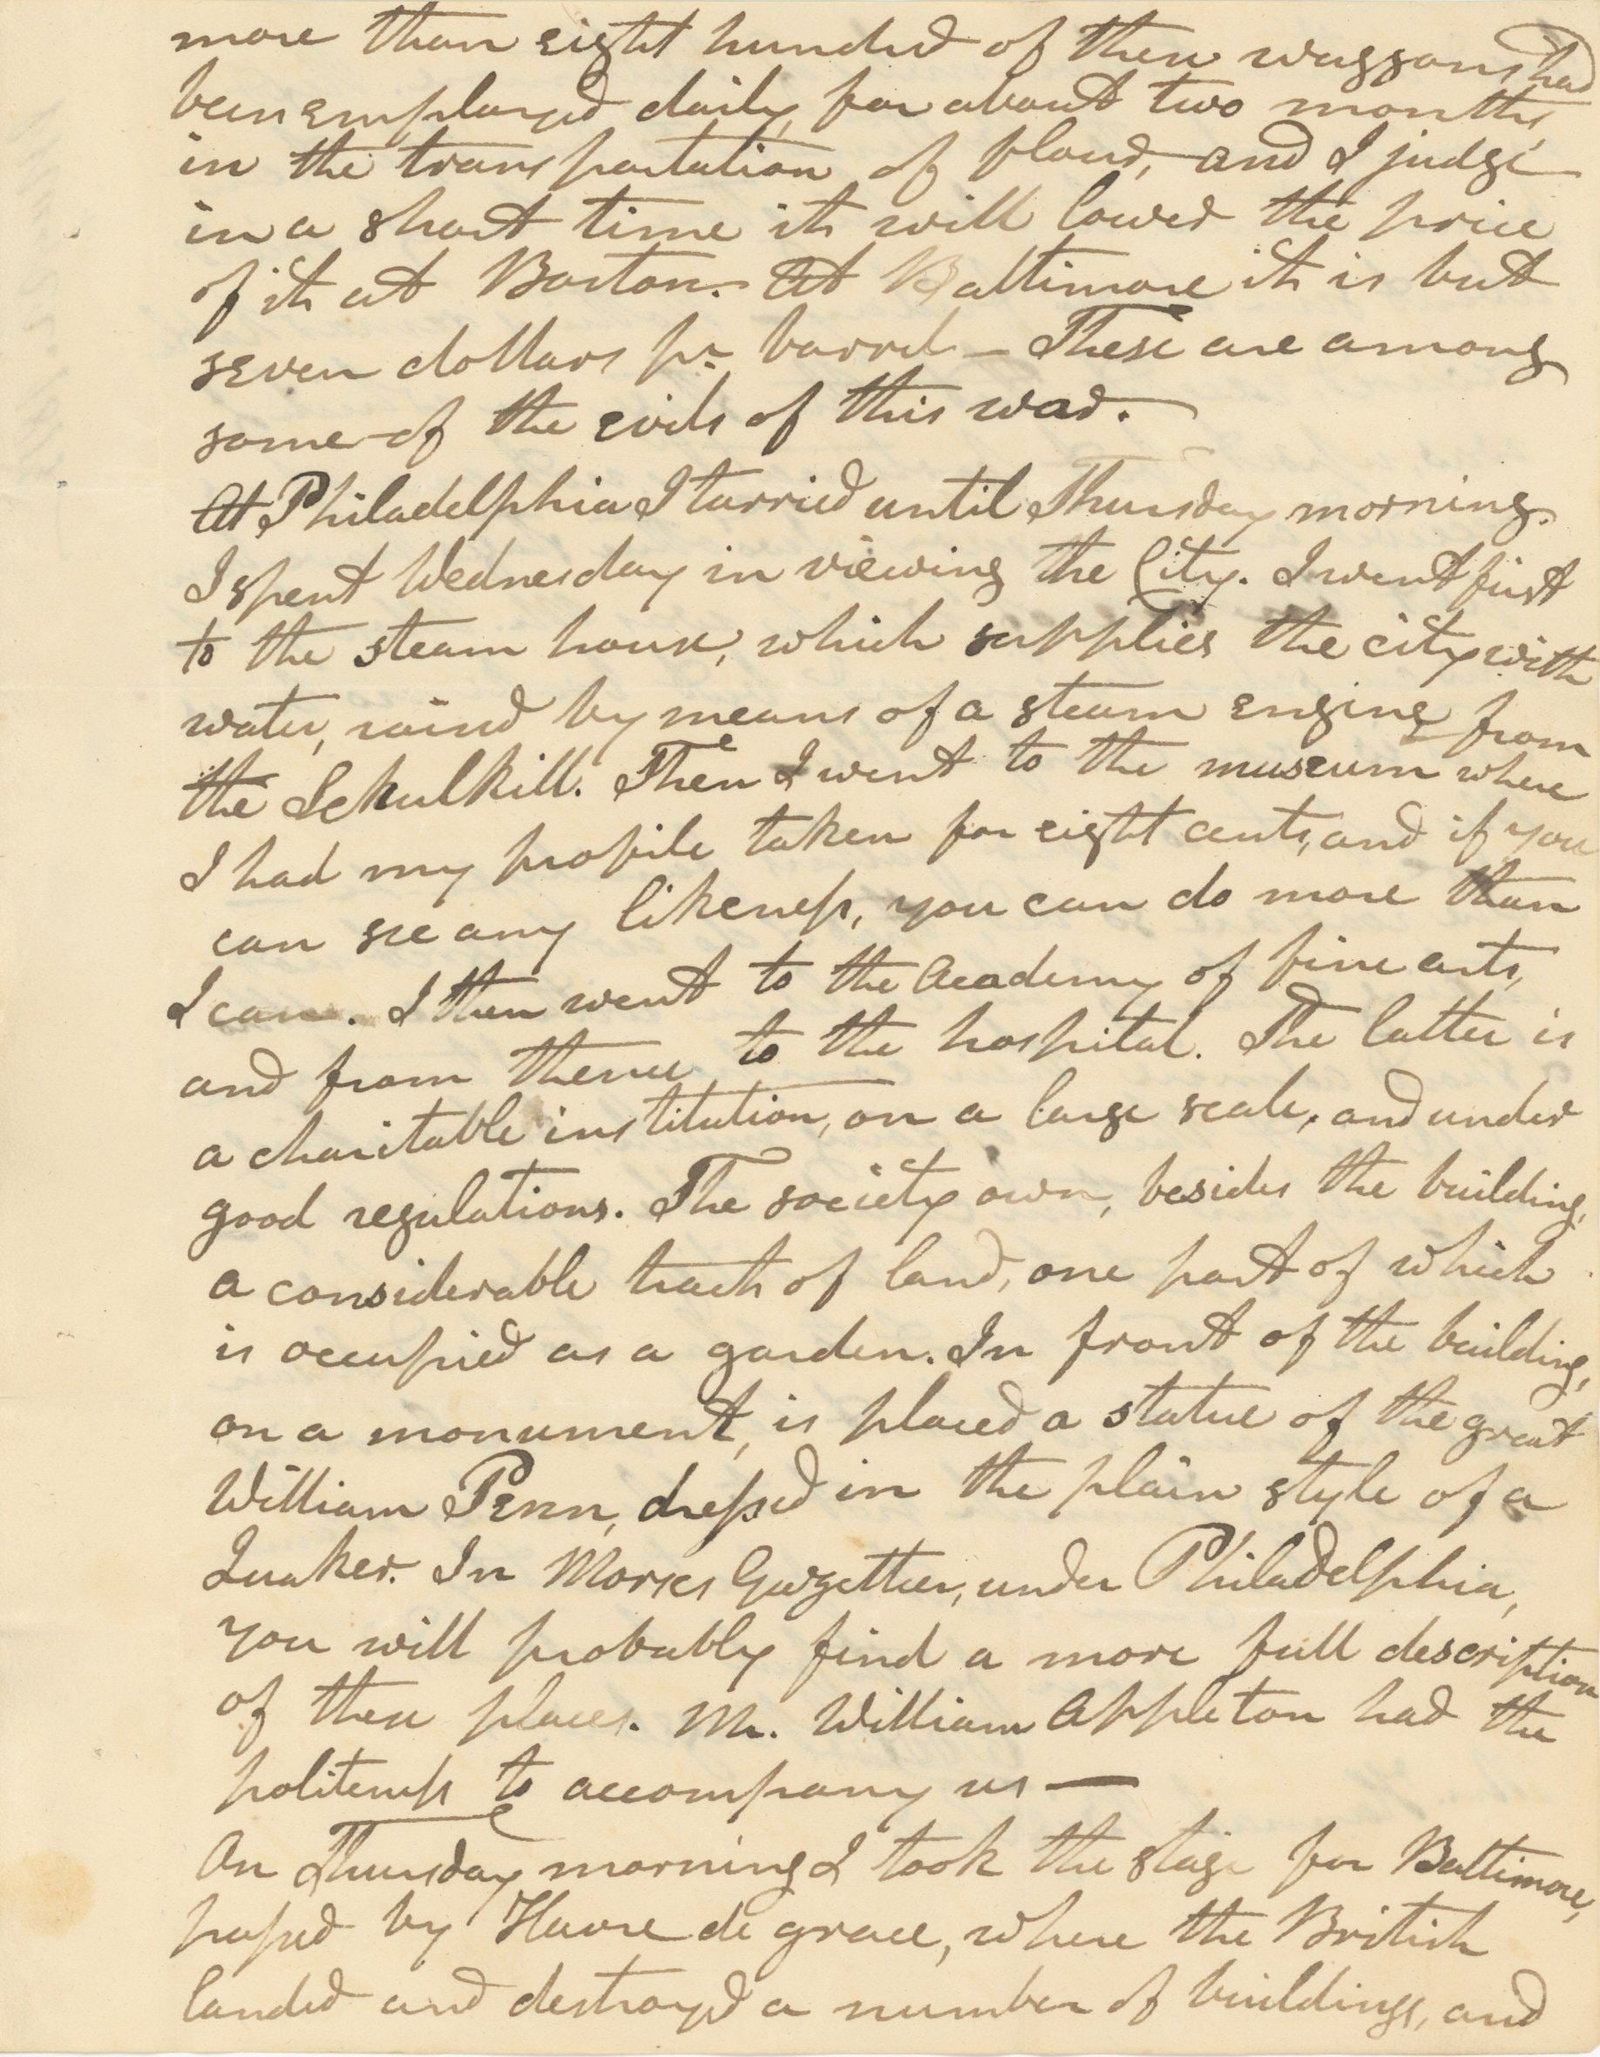 more than eight hundred of these waggons had
been employed daily, for about two months,
in the transportation of flour, and I judge
in a short time it will lower the price
of it at Boston. At Baltimore it is but
seven dollars pr barrel — These are among
some of the evils of this war.
At Philadelphia I tarried until Thursday morning.
I spent Wednesday in viewing the City. I went first
to the steam house, which supplies the city with
water, raised by means of a steam engine from
the Schulkill. Then I went to the museum where
I had my profile taken for eight cents, and if you
can see any likeness, you can do more than
I can. I then went to the Academy of fine arts,
and from thence to the hospital. The latter is
a charitable institution, on a large scale, and under
good regulations. The society own, besides the building,
a considerable tract of land, one part of which
is occupied as a garden. In front of the building,
on a monument, is placed a statue of the great
William Penn, dressed in the plain style of a
Quaker. In Morses Gazetteer, under Philadelphia,
you will probably find a more full description
of these places. Mr. William Appleton had the
politeness to accompany us —
On Thursday morning I took the stage for Baltimore,
passed by Havre de grace, where the British
landed and destroyed a number of buildings, and